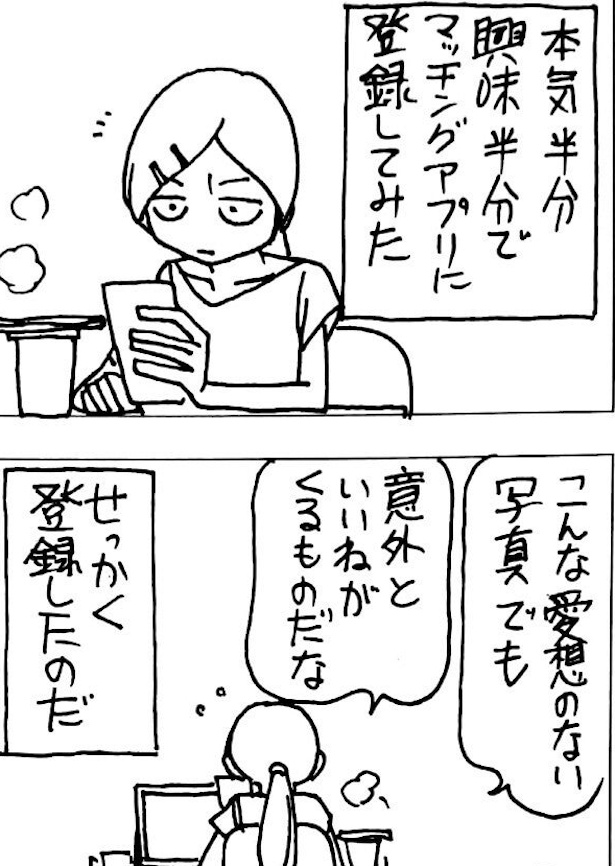 本気半分
興味半分で
マッチングアプリに
登録してみた
こんな愛想のない
写真でも
意外と
いいねが
くるものだな
せっかく
登録したのだ